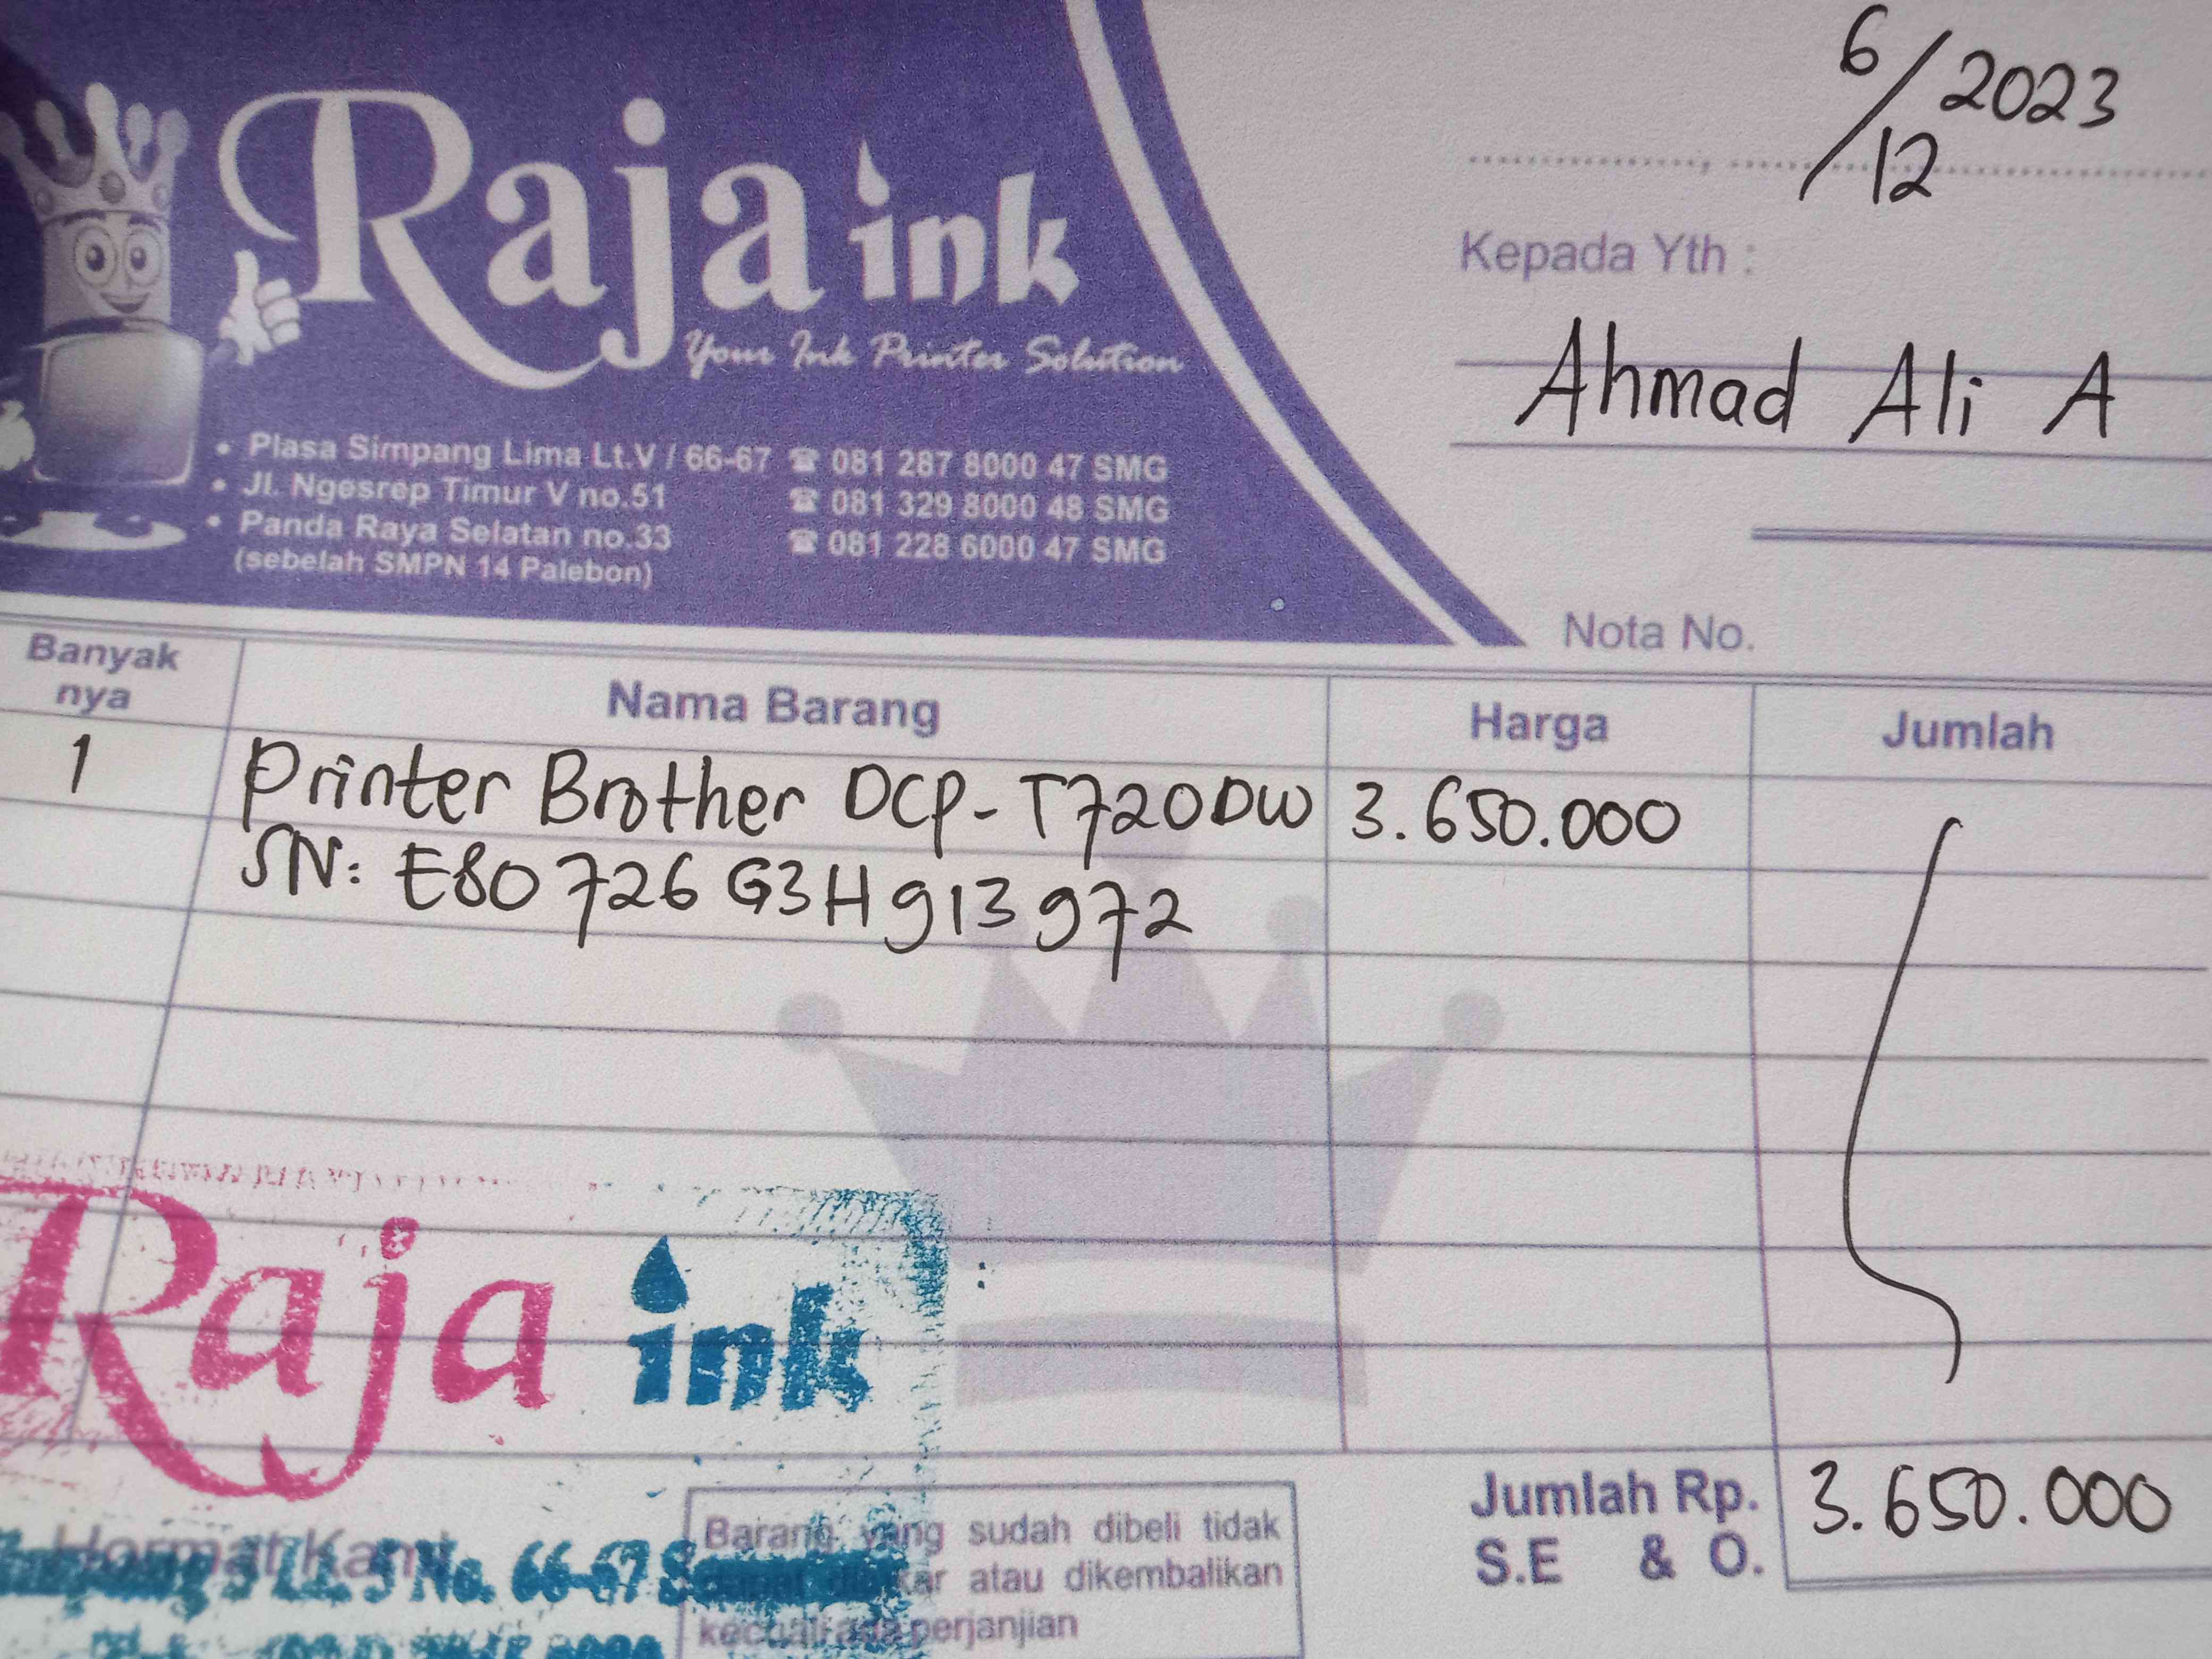 Raja ink
Your Ink Printer Solution
• Plasa Simpang Lima Lt.V / 66-67 ☎ 081 287 8000 47 SMG
• Jl. Ngesrep Timur V no.51 ☎ 081 329 8000 48 SMG
• Panda Raya Selatan no.33 ☎ 081 228 6000 47 SMG
(sebelah SMPN 14 Palebon)
6/12 2023
Kepada Yth :
Ahmad Ali A
Nota No.
Banyak nya Nama Barang Harga Jumlah
1 Printer Brother DCP-T720DW 3.650.000
SN: E80726G3H913972
Raja ink
Hormat Kami
5 Lt. 5 No. 66-67
Barang yang sudah dibeli tidak
atau dikembalikan
perjanjian
Jumlah Rp. 3.650.000
S.E & O.